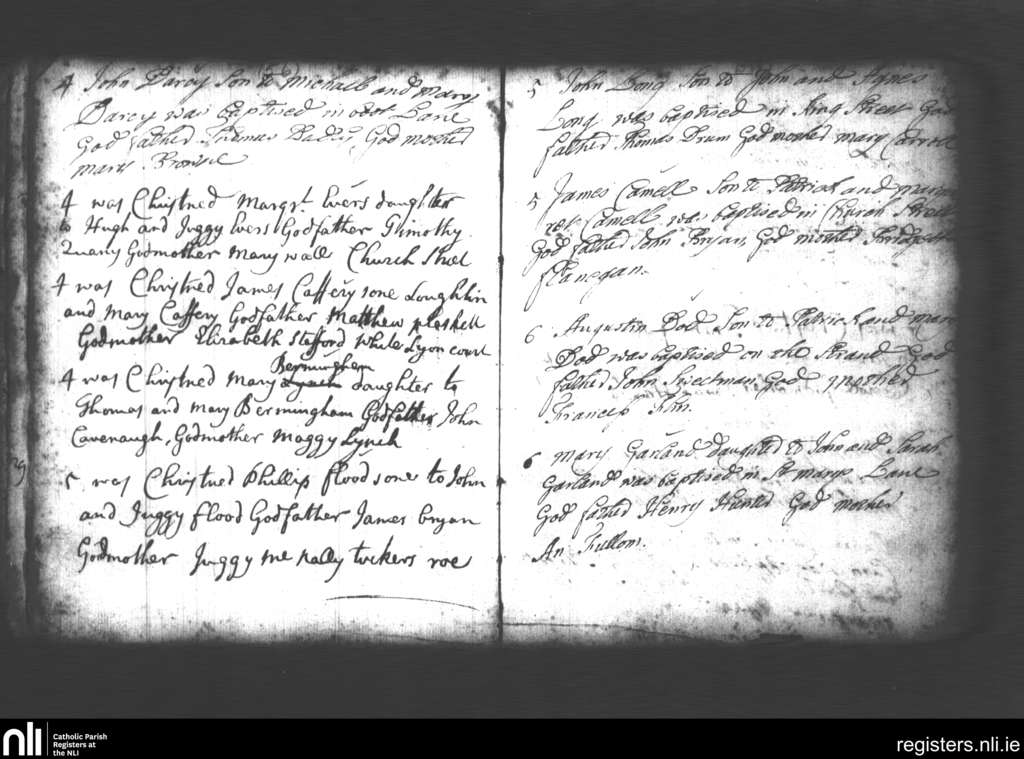 4 John Darcy Son to Michall and Mary
Darcy was baptised in Lane
God father Thomas God mother
mary Browne
4 was Christned Margrt. Ivers daughter
to Hugh and Juggy Ivers Godfather Thimothy
Godmother Mary wall Church Street
4 was Christned James Caffery sone Loughlin
and Mary Caffery Godfather Matthew pleskell
Godmother Elizabeth Stafford White Lyon court
Bermingham
4 was Christned Mary Lynch daughter to
Thomas and Mary Bermingham Godfather John
Cavenaugh, Godmother Maggy Lynch
5 was Christned Phillip flood sone to John
and Juggy flood Godfather James bryan
Godmother Juggy Mc Nally tuckers roe
5 John Long Son to John and Agnes
Long was baptised in King Street God
father Thomas Drum God mother mary Carroll
5 James Camell Son to Patrick and marga
ret Camell was baptised in Church Street
God father John Bryan, God mother Bridget
flanegan.
6 Augustin Dod Son to Patrick and mary
Dod was baptised on the Strand God
father John God mother
Frances
6 mary Garland daughter to John and Sarah
Garland was baptised in St marys Lane
God father Henry Hunter God mother
An Fullom.
nli
Catholic Parish
Registers at
the NLI
registers.nli.ie